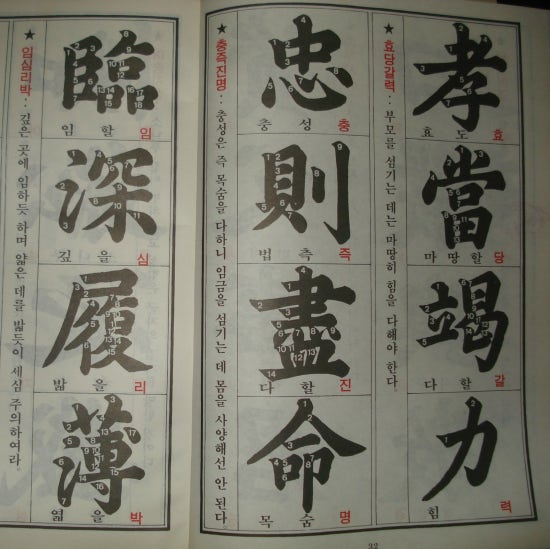 孝
효도 효
當
마땅할 당
竭
다할 갈
力
힘 력
★ 효당갈력 : 부모를 섬기는 데는 마땅히 힘을 다해야 한다.
忠
충성 충
則
법측 즉
盡
다할 진
命
목숨 명
★ 충즉진명 : 충성은 즉 목숨을 다하니 임금을 섬기는 데 몸을 사양해선 안 된다.
臨
임할 임
深
깊을 심
履
밟을 리
薄
엷을 박
★ 임심리박 : 깊은 곳에 임하듯 하며 얇은 데를 밟듯이 세심 주의하여라.
32